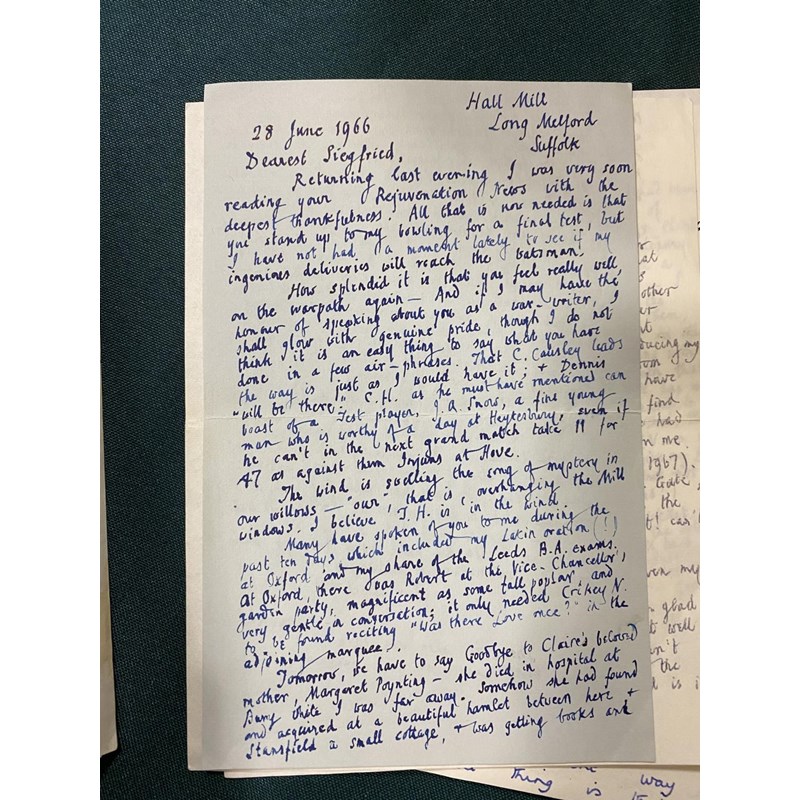 Hall Mill
Long Melford
Suffolk
28 June 1966
Dearest Siegfried,
Returning last evening I was very soon
reading your Rejuvenation News with the
deepest thankfulness. All that is now needed is that
you stand up to my bowling for a final test, but
I have not had a moment lately to see if my
ingenious deliveries will reach the batsman.
How splendid it is that you feel really well,
on the warpath again – And if I may have the
honour of speaking about you as a war-writer, I
shall glow with genuine pride, though I do not
think it is an easy thing to say what you have
done in a few air-phrases. That C. Causley leads
the way is just as I would have it; + Dennis
"will be there." C.H. as he must have mentioned can
boast of a Test player, J.A. Snow, a fine young
man who is worthy of a day at Heytesbury, even if
he can't in the next grand match take 11 for
47 as against them Injuns at Hove.
The wind is swelling the song of mystery in
our willows – "our", that is, overhanging the Mill
windows. I believe T.H. is in the wind.
Many have spoken of you to me during the
past ten days which included my Latin oration (!)
at Oxford and my share of the Leeds B.A. exams.
At Oxford, there was Robert at the Vice-Chancellor's
garden party, magnificent as some tall poplar, and
very gentle in conversation; it only needed Crikey N.
to be found reciting "Was there love once?" in the
adjoining marquee.
Tomorrow, we have to say Goodbye to Claire's beloved
mother, Margaret Poynting – she died in hospital at
Bury while I was far away. Somehow she had found
and acquired at a beautiful hamlet between here +
Stansfield a small cottage, + was getting books and
at
other
ucing my
have
find
had
n me
1967).
the
can't
en my
glad
well
the
is i
way
thing is